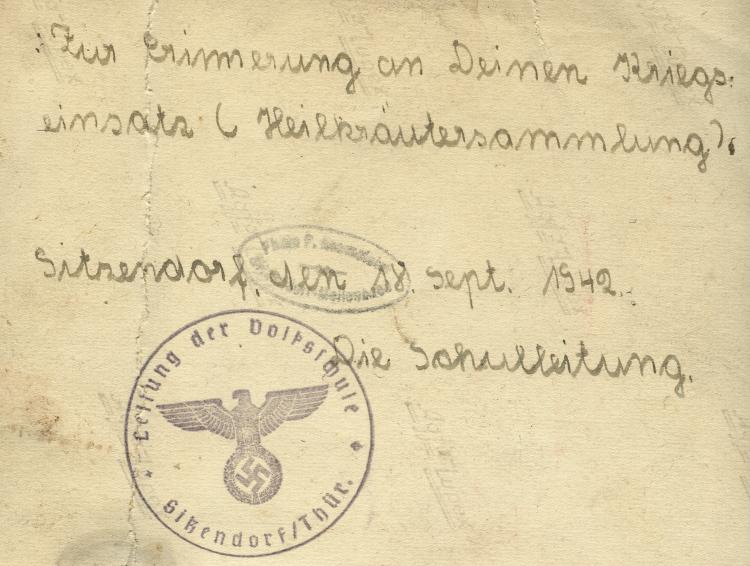 :Zur Erinnerung an Deinen Kriegs:
einsatz ( Heilkräutersammlung).
Sitzendorf, den 18. Sept. 1942.
Die Schulleitung.
Leitung der Volksschule
Sitzendorf/Thür.